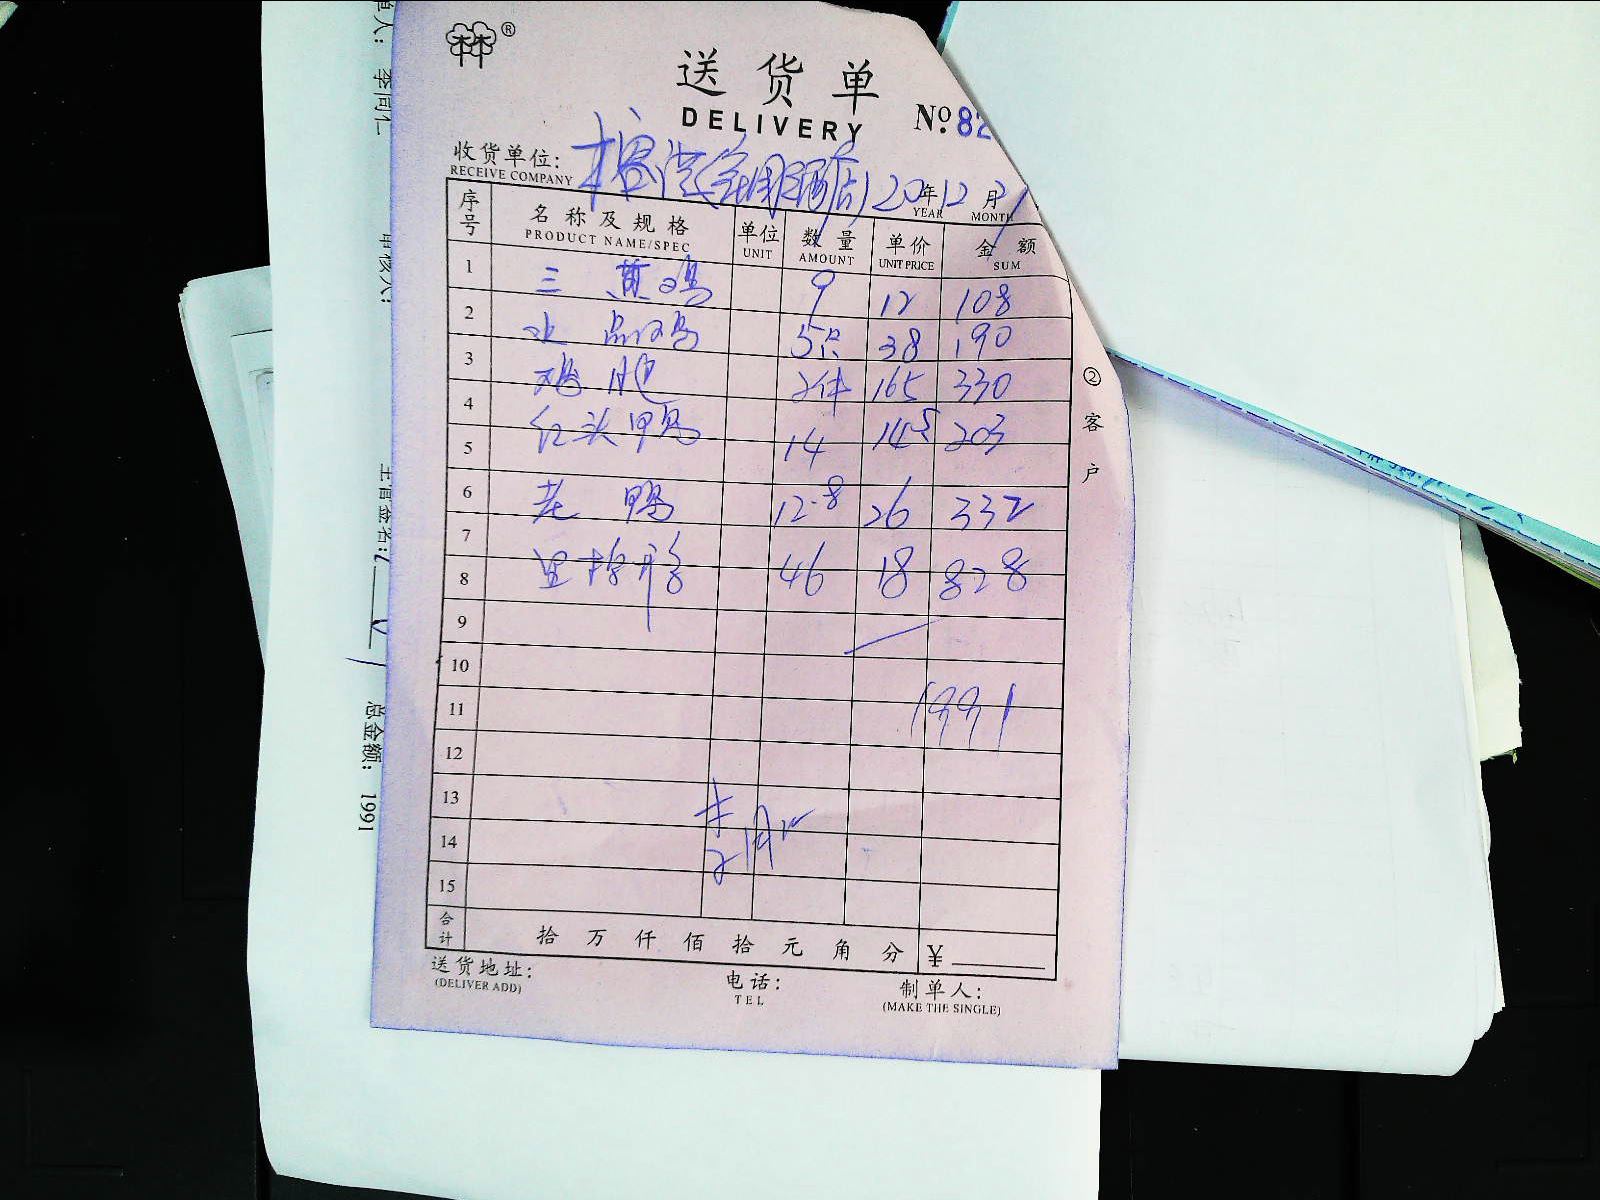 ®
送货单
DELIVERY
No. 82
收货单位:
RECEIVE COMPANY
20年12月
YEAR MONTH
序号 名称及规格 单位 数量 单价 金额
PRODUCT NAME/SPEC UNIT AMOUNT UNIT PRICE SUM
1 三黄鸡 9 12 108
2 水晶鸡 5只 38 190
3 鸡腿 2件 165 330
4 红头鸭 14 14.5 203
5
6 老鸭 12.8 26 332
7
8 46 18 828
9
10
11 1991
12
13
14
15
合计 拾 万 仟 佰 拾 元 角 分 ¥
送货地址:
(DELIVER ADD)
电话:
TEL
制单人:
(MAKE THE SINGLE)
②客户
单人: 李同仁
审核人:
主管签名:
总金额: 1991